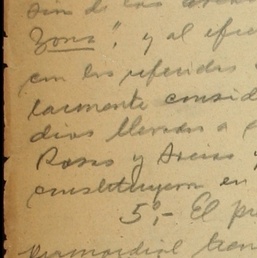 sin de las
Zona", y al efec
con los referidos
lacmente consid
dios llevados a
Rosas y Arcias y
constituyera en
5º,- El pr
primordial tien